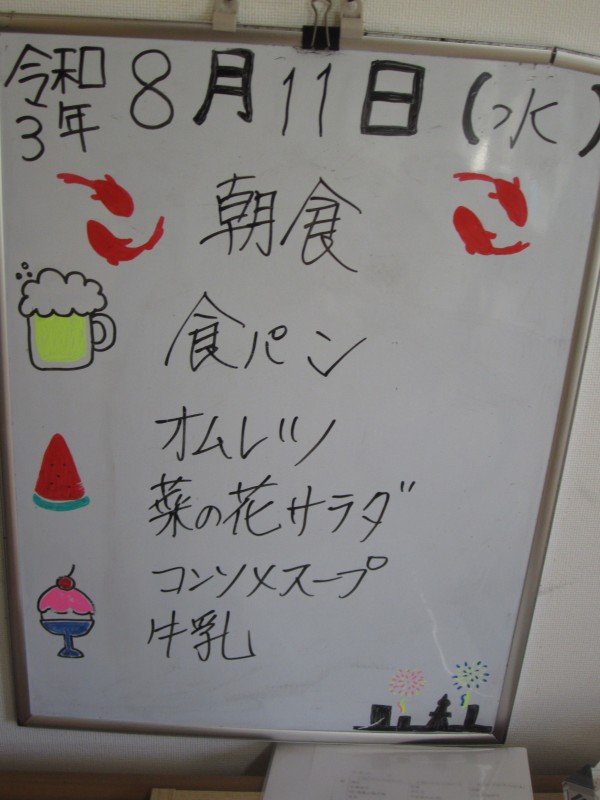 令和3年 8月11日(水)
朝食
食パン
オムレツ
菜の花サラダ
コンソメスープ
牛乳